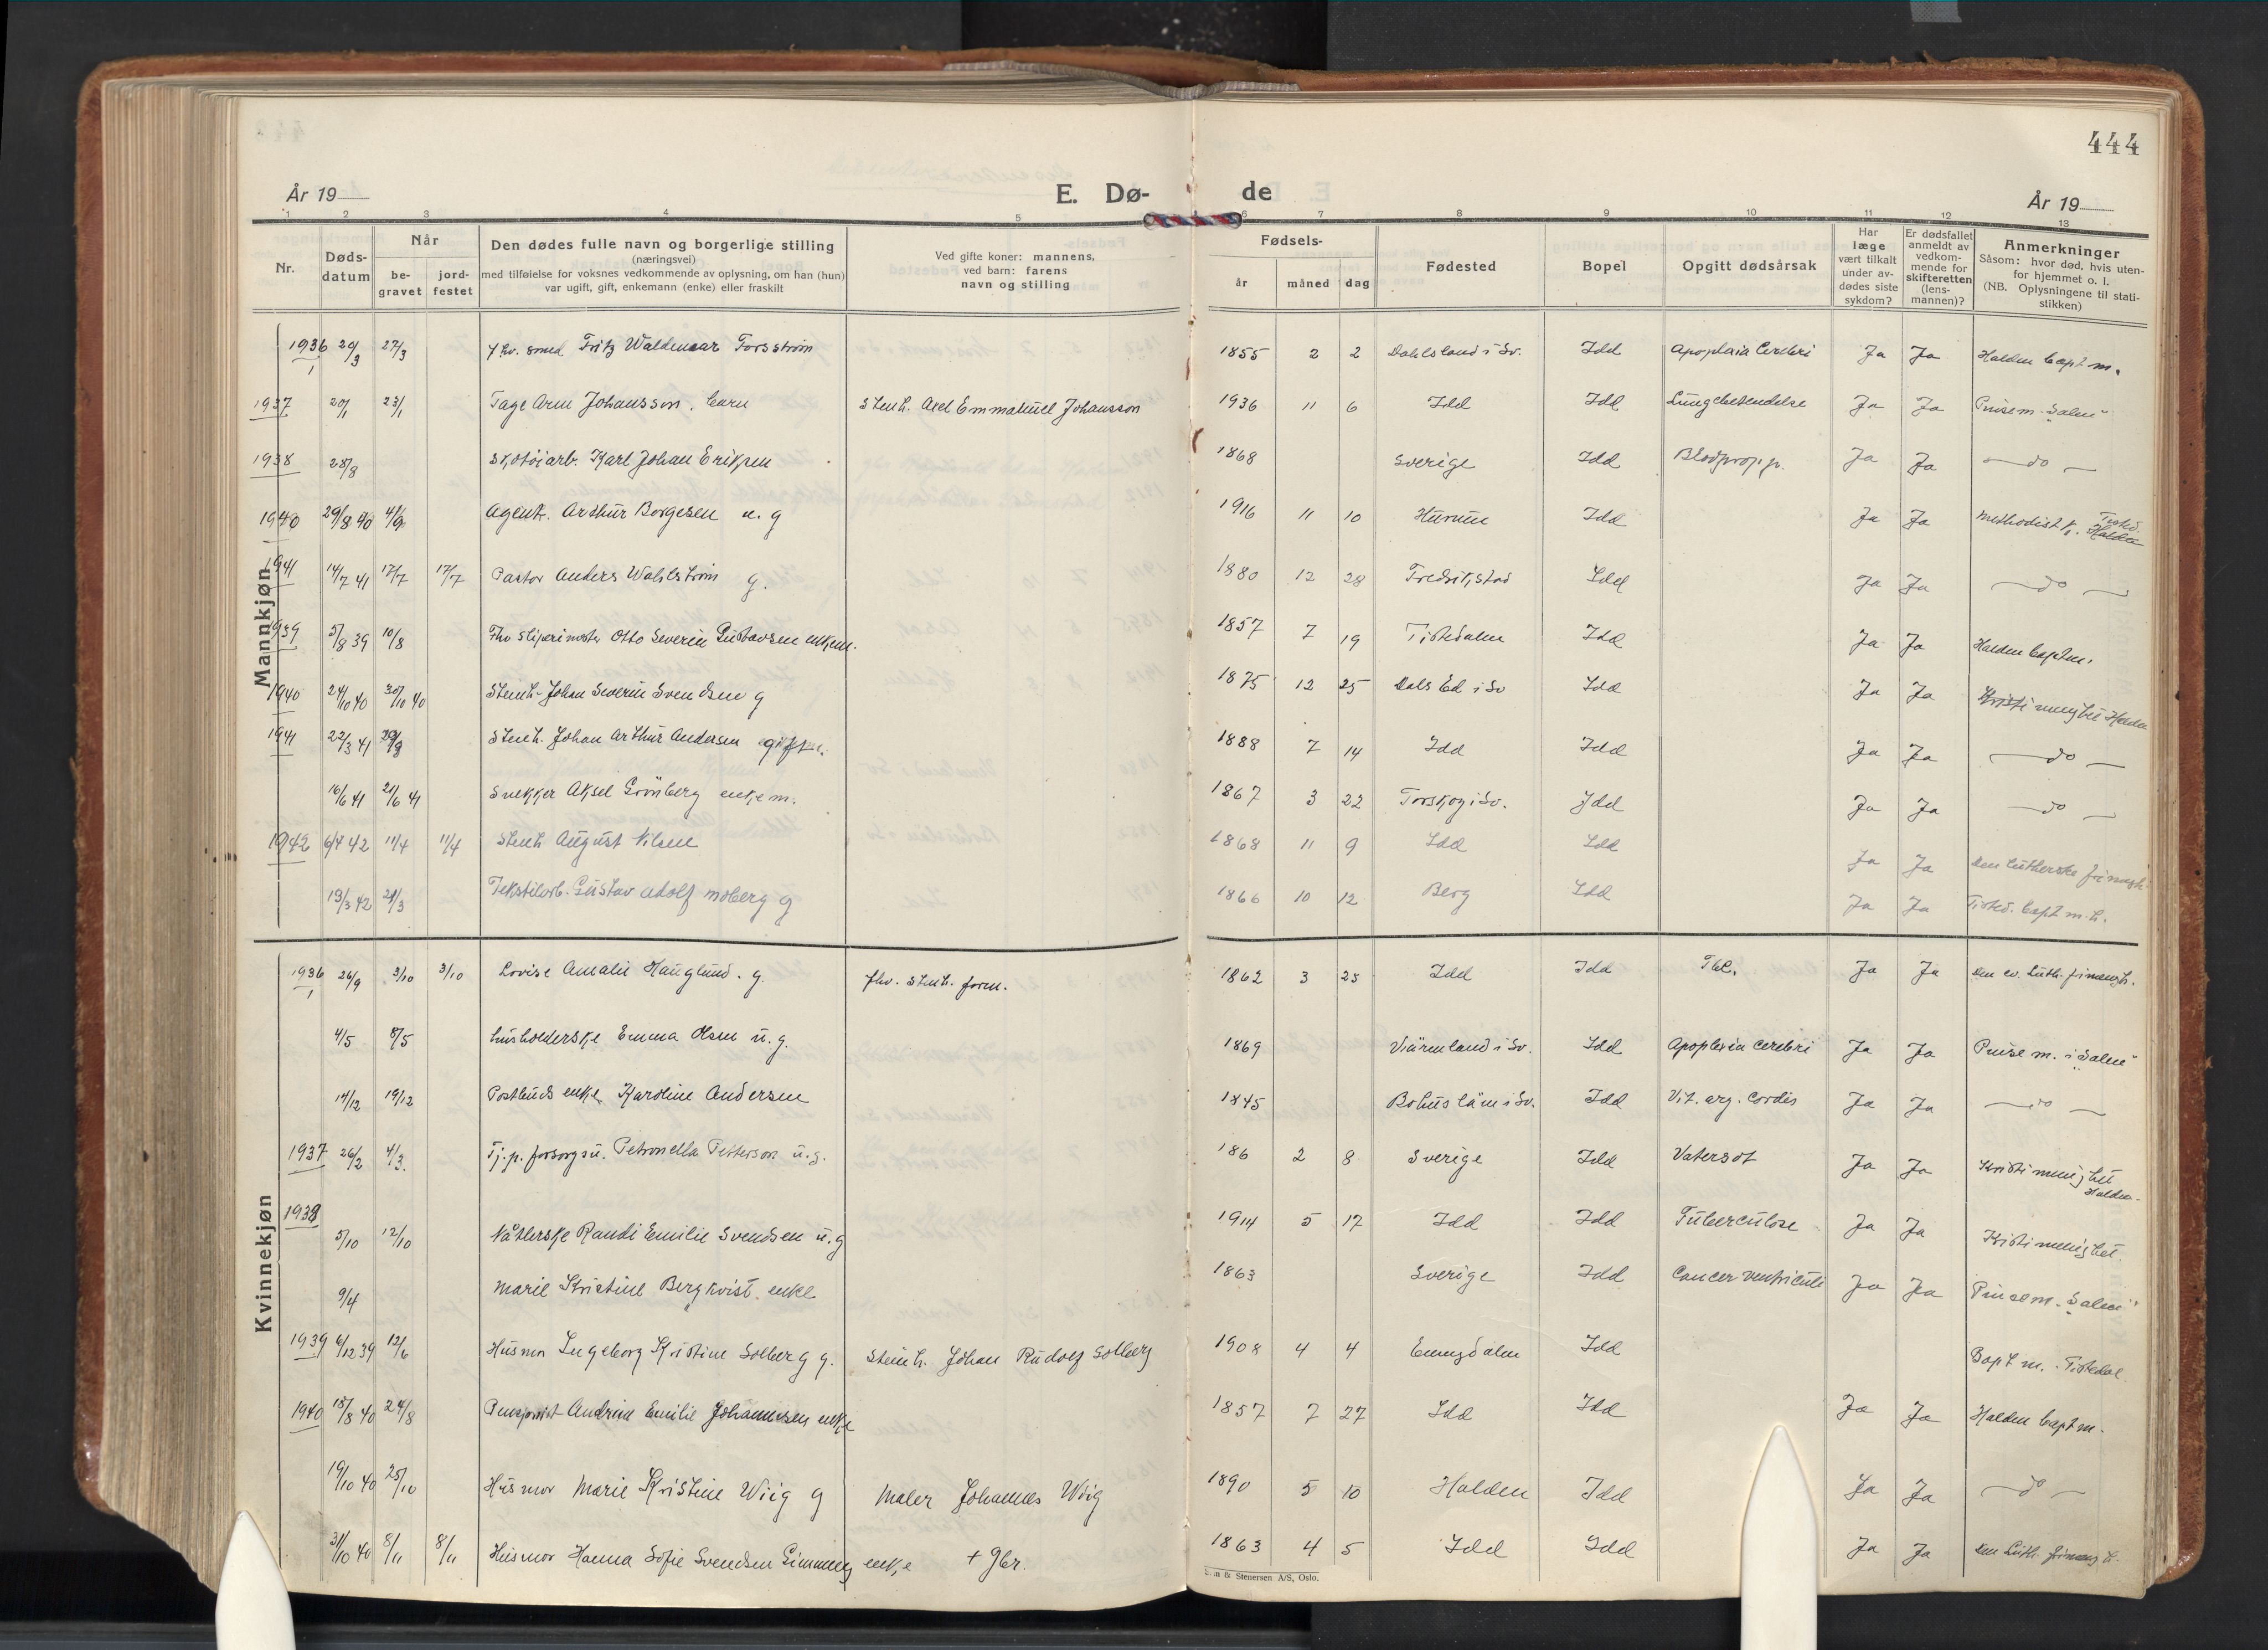 444
År 19
E. Dø-
de
År 19
1 2 3 4 5 6 7 8 9 10 11 12 13
Nr.
Døds-
datum
Når
be-
gravet
jord-
festet
Den dødes fulle navn og borgerlige stilling
(næringsvei)
med tilføielse for voksnes vedkommende av oplysning, om han (hun)
var ugift, gift, enkemann (enke) eller fraskilt
Ved gifte koner: mannens,
ved barn: farens
navn og stilling
Fødsels-
år måned dag
Fødested
Bopel
Opgitt dødsårsak
Har
læge
vært tilkalt
under av-
dødes siste
sykdom?
Er dødsfallet
anmeldt av
vedkom-
mende for
skifteretten
(lens-
mannen)?
Anmerkninger
Såsom: hvor død, hvis uten-
for hjemmet o. l.
(NB. Oplysningene til stati-
stikken)
Mannkjøn
1936 20/3 27/3 fhv. smed Fritz Waldemar Forsström 1855 2 2 Dahlsland i Sv. Idd Apoplexia Cerebri Ja Ja Halden bapt m.
1937 20/1 23/1 Tage Arne Johansson. barn Stenh. Axel Emmanuel Johansson 1936 11 6 Idd Idd Lungebetendelse Ja Ja Pinsem. Salem"
1938 28/8 Skotöiarb. Karl Johan Eriksen 1868 Sverige Idd Blodpropp. Ja Ja — do —
1940 29/8 40 4/9 Agent. Arthur Borgesen u. g 1916 11 10 Hurum Idd Ja Ja Methodist k. Tisted. Halden
1941 14/7 41 17/7 17/7 Pastor Anders Wahlström g. 1880 12 28 Fredrikstad Idd Ja Ja — do —
1939 5/8 39 10/8 Fhv sliperimester Otto Severin Gustavsen enkem. 1857 7 19 Tistedalen Idd Ja Ja Halden baptm.
1940 24/10 40 30/10 40 Stenh. Johan Severin Svendsen g 1875 12 25 Dals Ed i Sv Idd Ja Ja Kristi menighet Halden
1941 22/3 41 Stenh. Johan Arthur Andersen gift. 1888 7 14 Idd Idd Ja Ja — do —
16/6 41 21/6 41 Snekker Aksel Grönberg enkem. 1867 3 22 Torskog i Sv. Idd Ja Ja — do —
1942 6/4 42 11/4 11/4 Stenh August Nilsen 1868 11 9 Idd Idd Ja Ja Den lutherske frimenigh.
19/3 42 21/3 Tekstilarb. Gustav Adolf Moberg g 1866 10 12 Berg Idd Ja Ja Tisted. bapt m.h.
Kvinnekjøn
1936 26/9 3/10 3/10 Lovise Amalie Hauglund. g. fhv. stenh. form. 1862 3 25 Idd Idd Tbc. Ja Ja Den ev. luth. frimenigh.
4/5 8/5 husholderske Emma Olsen u. g. 1869 Värmland i Sv. Idd Apoplexia cerebri Ja Ja Pinse m. i Salem"
14/12 19/12 Postbuds enke Karoline Andersen 1845 Bohuslän i Sv. Idd Vit. org. Cordis Ja Ja — do —
1937 26/2 4/3. Tj. p. forsorgsu. Petronella Petterson u. g. 186 2 8 Sverige Idd Vatersot Ja Ja Kristi menighet Halden.
1938
5/10 12/10 Nåtlerske Randi Emilie Svendsen u. g 1914 5 17 Idd Idd Tuberculose Ja Ja Kristi menighet.
9/4 Marie Kristine Bergkvist. enke 1863 Sverige Idd Cancer ventriculi Ja Ja Pinsem. Salem"
1939 6/12 39 12/6 Husmor Ingeborg Kristine Solberg g. Stenh. Johan Rudolf Solberg 1908 4 4 Enningdalen Idd Bapt m. Tistedal
1940 18/8 40 24/8 Pensjonist Andrine Emilie Johannesen enke 1857 7 27 Idd Idd Ja Ja Halden bapt m.
19/10 40 25/10 Husmor Marie Kristine Wiig g Maler Johannes Wiig 1890 5 10 Halden Idd Ja Ja — do —
31/10 40 8/11 8/11 Husmor Hanna Sofie Svendsen Gimming enke + Gbr. 1863 4 5 Idd Idd Ja Ja Den Luth. frimenigh.
& Stenersen A/S, Oslo.